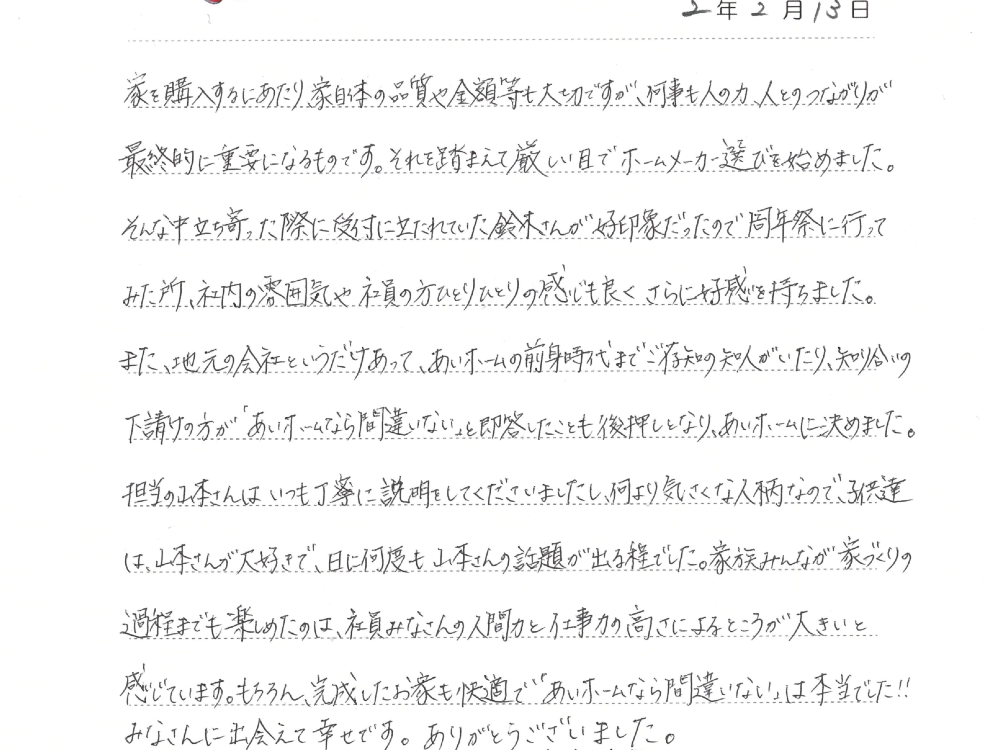 2年2月13日
家を購入するにあたり、家自体の品質や金額等も大切ですが、何事も人の力、人とのつながりが
最終的に重要になるものです。それを踏まえて厳しい目でホームメーカー選びを始めました。
そんな中立ち寄った際に受付に立たれていた鈴木さんが好印象だったので周年祭に行って
みた所、社内の雰囲気や社員の方ひとりひとりの感じも良くさらに好感を持ちました。
また、地元の会社というだけあって、あいホームの前身時代までご存知の知人がいたり、知り合いの
下請けの方が「あいホームなら間違いない」と即答したことも後押しとなり、あいホームに決めました。
担当の山本さんはいつも丁寧に説明をしてくださいましたし、何より気さくな人柄なので、子供達
は、山本さんが大好きで、日に何度も山本さんの話題が出る程でした。家族みんなが家づくりの
過程までも楽しめたのは、社員みなさんの人間力と仕事力の高さによるところが大きいと
感じています。もちろん、完成したお家も快適で「あいホームなら間違いない」は本当でした!!
みなさんに出会えて幸せです。ありがとうございました。